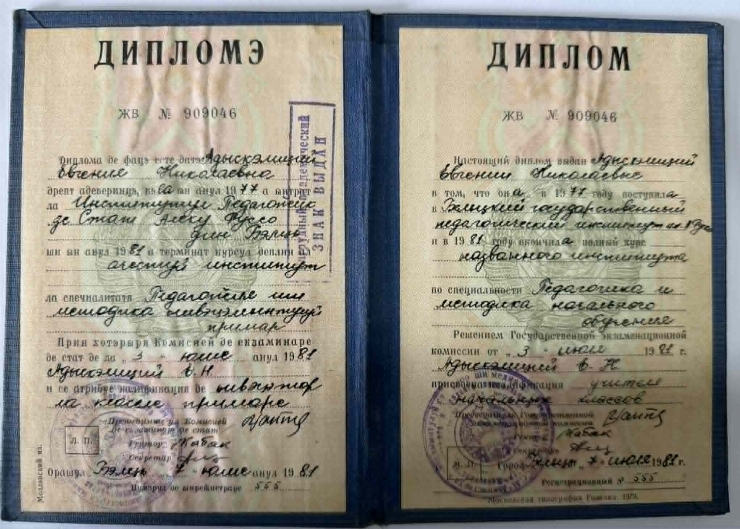 ДИПЛОМЭ
ЖВ № 909046
Диплома де фацэ есте датэ Адыскэлицей
Евгения Николаевна
дрепт адеверинцэ, кэ еа ын анул 1977 а интрат
ла Институтул Педагожик
де Стат Алеку Руссо
дин Бэлць
ши ын анул 1981 а терминат курсул деплин ал
ачестуй институт
ла спечиалитатя Педагожие ши
методика ынвэцэмынтулуй
примар
Прин хотэрыря Комисией де екзаминаре
де стат де ла „3" юлие анул 1981
и се атрибуе калификация де ынвэцэтор
ла класеле примаре
Прешединтеле Комисией
де екзаминаре де стат
Ректор Кабак
Секретар
Л. П.
Орашул Бэлць 7 юлие анул 1981
Нумэрул де ынрежистраре 555
Молдавский яз.
нагрудный академический
ЗНАК ВЫДАН
ДИПЛОМ
ЖВ № 909046
Настоящий диплом выдан
Евгении Николаевне
в том, что она в 1977 году поступила
в Бельцкий государственный
педагогический институт им. А. Руссо
и в 1981 году окончила полный курс
названного института
по специальности Педагогика и
методика начального
обучения
Решением Государственной экзаменационной
комиссии от „3" июля 1981 г.
Е. Н.
присвоена квалификация учителя
начальных классов
Председатель Государственной
экзаменационной комиссии
Ректор Кабак
Секретарь
М. П. Город Бельцы 7 июля 1981 г.
Регистрационный № 555
Московская типография Гознака. 1979.